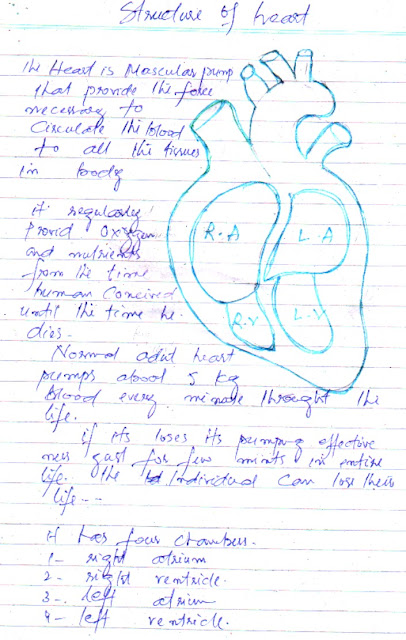 Structure of heart
The Heart is Mascular pump
that provide the force
necessary to
Circulate the blood
to all the tissues
in body
it regularly
provid oxygen
and nutrients
from the time
human conceived
until the time he
dies.
R.A
L.A
R.V
L.V
Normal adult heart
pumps 5 kg
blood every minute throught the
life.
if its loses its pumping effective
ness just for few mints in entire
life. the Individual can lose their
life --
it has four chambers.
1- right atrium
2- right ventricle.
3- left atrium
4- left ventricle.